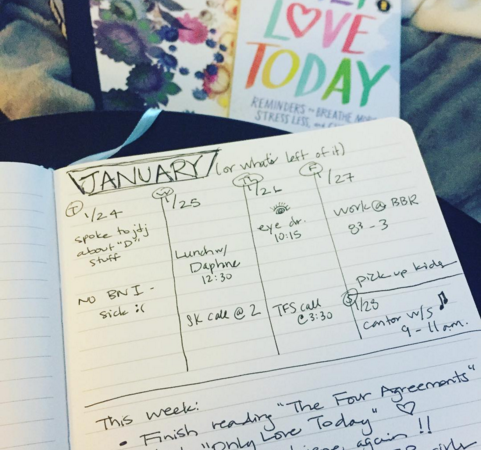 LOVE
TODAY
REMINDERS to BREATHE MORE
STRESS LESS, and
JANUARY (or what's left of it)
T 1/24
spoke to jdj
about "D"
stuff
NO BNI -
sick :(
W 1/25
Lunch w/
Daphne
12:30
SK call @ 2
Th 1/26
eye dr.
10:15
TFS call
@ 3:30
F 1/27
work @ BBR
- 3
pick-up kids
S 1/28
cantor w/s
9-11 am.
This week:
• Finish reading "The Four Agreements"
"Only Love Today" ♡
again !!
girls